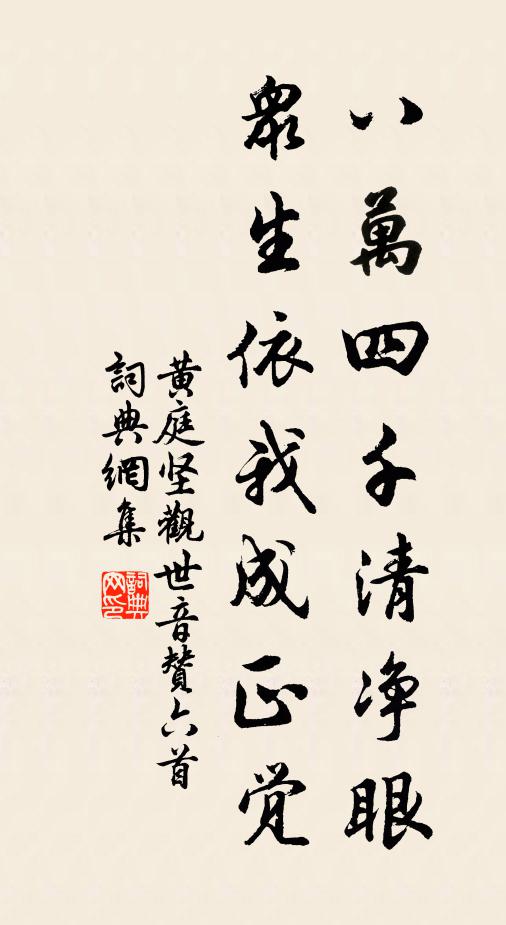 八萬四千清净眼
衆生依我成正覺
黄庭坚觀世音贊六首
詞典網集
詞典网印